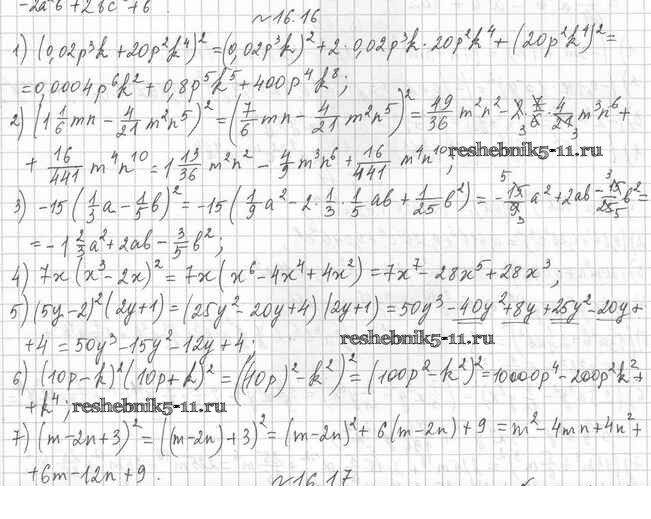 -2a²b + 2bc² + b .
№16.16
1) (0,02p³k + 20p²k⁴)² = (0,02p³k)² + 2·0,02p³k · 20p²k⁴ + (20p²k⁴)² =
= 0,0004p⁶k² + 0,8p⁵k⁵ + 400p⁴k⁸;
2) (1 1/6 mn - 4/21 m²n⁵)² = (7/6 mn - 4/21 m²n⁵)² = 49/36 m²n² - 2 · 7/6 · 4/21 m³n⁶ +
+ 16/441 m⁴n¹⁰ = 1 13/36 m²n² - 4/9 m³n⁶ + 16/441 m⁴n¹⁰;
reshebnik5-11.ru
3) -15(1/3 a - 1/5 b)² = -15(1/9 a² - 2·1/3·1/5 ab + 1/25 b²) = -15/9 a² + 2ab - 15/25 b² =
= -1 2/3 a² + 2ab - 3/5 b²;
4) 7x(x³ - 2x)² = 7x(x⁶ - 4x⁴ + 4x²) = 7x⁷ - 28x⁵ + 28x³;
5) (5y-2)²(2y+1) = (25y² - 20y + 4)(2y+1) = 50y³ - 40y² + 8y + 25y² - 20y +
+ 4 = 50y³ - 15y² - 12y + 4;
reshebnik5-11.ru
6) (10p-k)²(10p+k)² = ((10p)² - k²)² = (100p² - k²)² = 10000p⁴ - 200p²k² +
+ k⁴;
reshebnik5-11.ru
7) (m-2n+3)² = ((m-2n)+3)² = (m-2n)² + 6(m-2n) + 9 = m² - 4mn + 4n² +
+ 6m - 12n + 9 .
№16.17